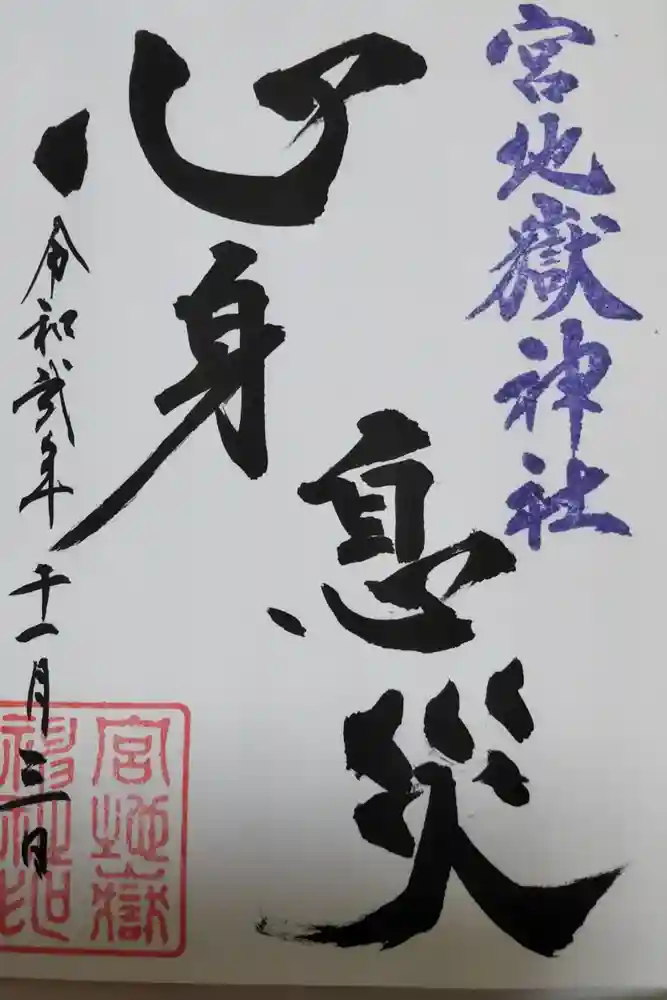 宮地嶽神社
心身
息災
令和弐年十一月三日
宮地嶽